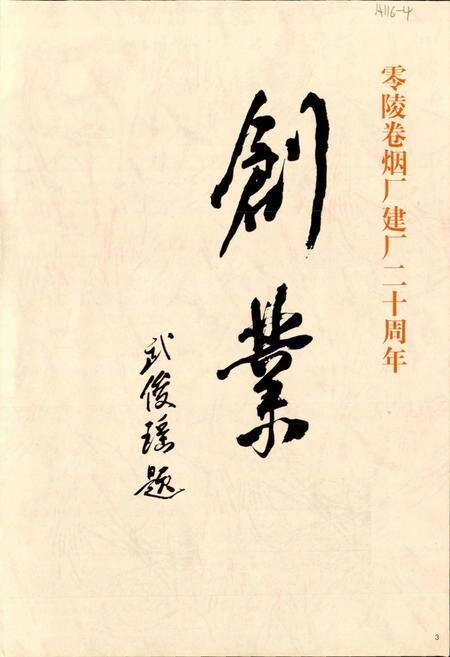 零陵卷烟厂建厂二十周年
創業
武俊瑶题
14116-4
3